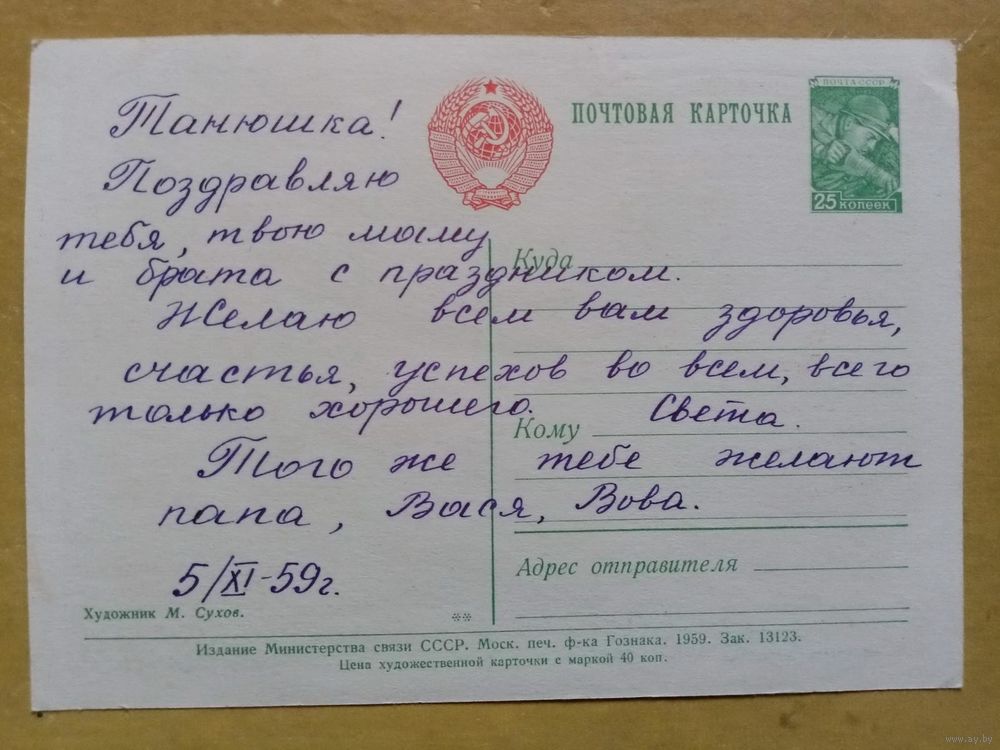 ПОЧТА СССР
25 копеек
ПОЧТОВАЯ КАРТОЧКА
Танюшка!
Поздравляю
тебя, твою маму
и брата с праздником.
Желаю всем вам здоровья,
счастья, успехов во всем, всего
только хорошего. Света.
Того же тебе желают
папа, Вася, Вова.
5/XI-59г.
Куда
Кому
Адрес отправителя
Художник М. Сухов.
Издание Министерства связи СССР. Моск. печ. ф-ка Гознака. 1959. Зак. 13123.
Цена художественной карточки с маркой 40 коп.
www.ay.by